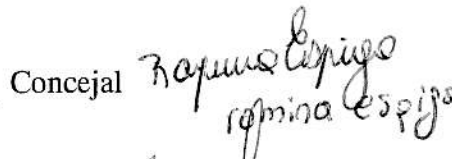 Concejal Romina Espiga
romina espiga